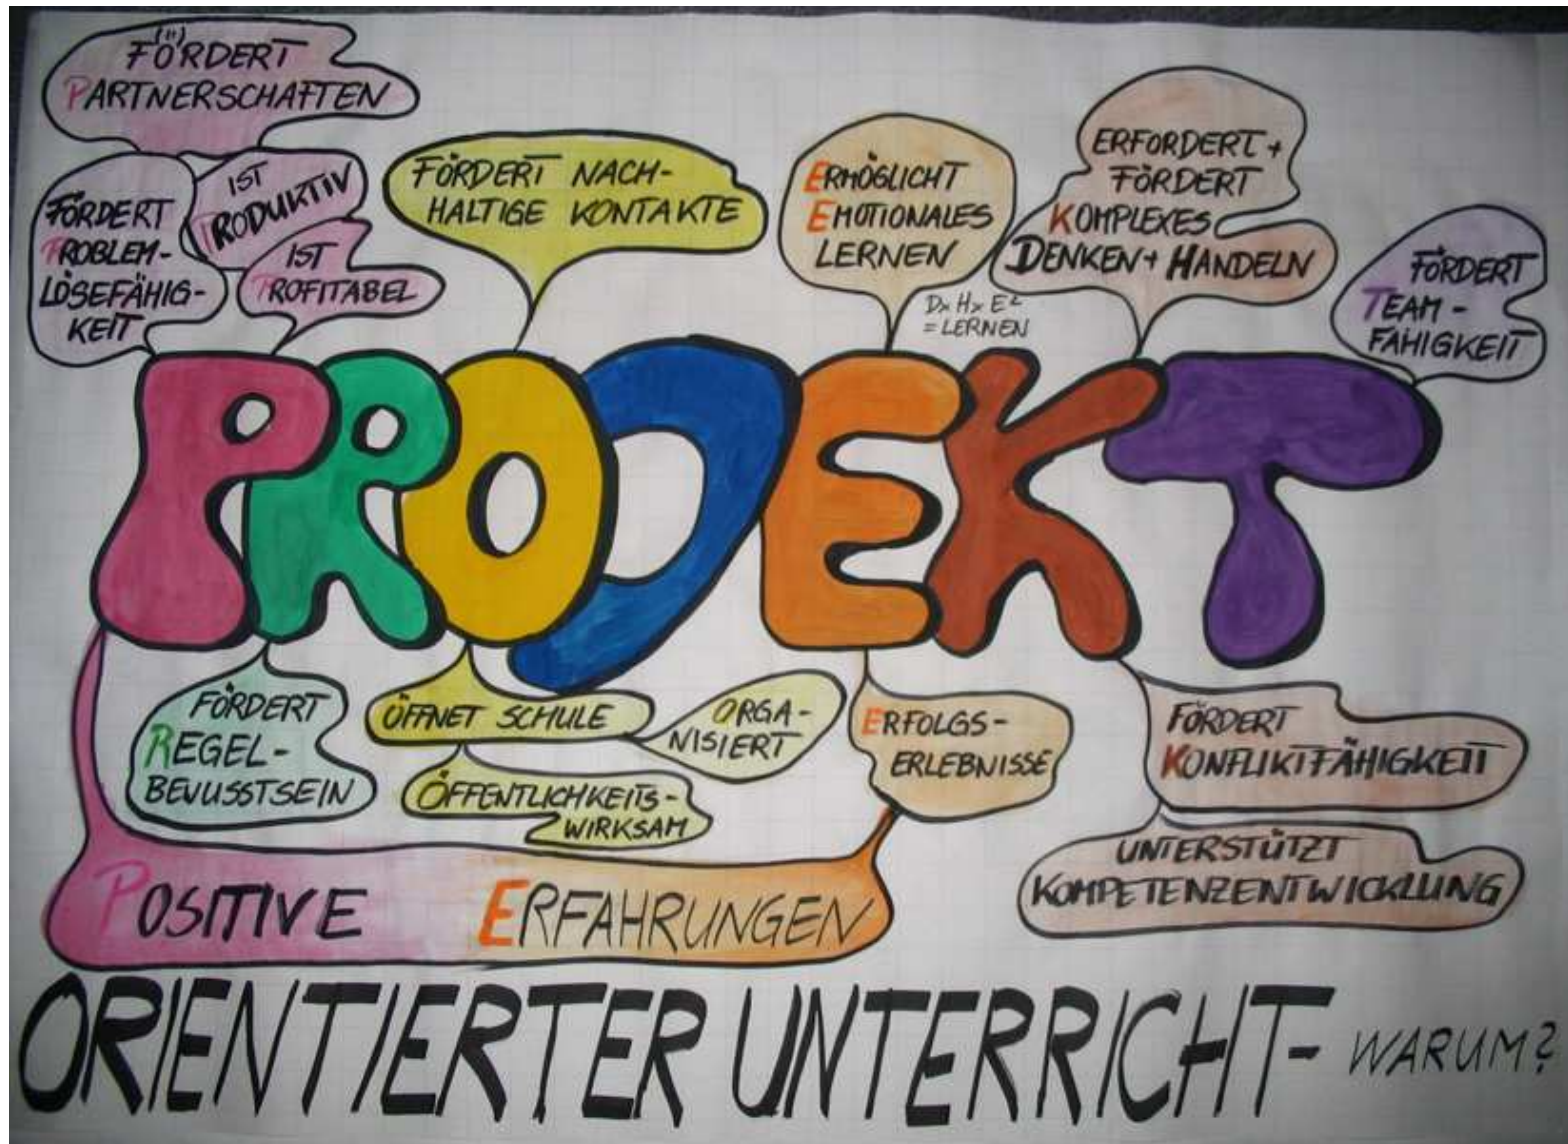 FÖRDERT
PARTNERSCHAFTEN
FÖRDERT
PROBLEM-
LÖSEFÄHIG-
KEIT
IST
PRODUKTIV
IST
PROFITABEL
FÖRDERT NACH-
HALTIGE KONTAKTE
ERMÖGLICHT
EMOTIONALES
LERNEN
ERFORDERT +
FÖRDERT
KOMPLEXES
DENKEN + HANDELN
D x H x E²
= LERNEN
FÖRDERT
TEAM-
FÄHIGKEIT
PROJEKT
FÖRDERT
REGEL-
BEWUSSTSEIN
ÖFFNET SCHULE
ORGA-
NISIERT
ÖFFENTLICHKEITS-
WIRKSAM
ERFOLGS-
ERLEBNISSE
FÖRDERT
KONFLIKTFÄHIGKEIT
UNTERSTÜTZT
KOMPETENZENTWICKLUNG
POSITIVE ERFAHRUNGEN
ORIENTIERTER UNTERRICHT- WARUM?